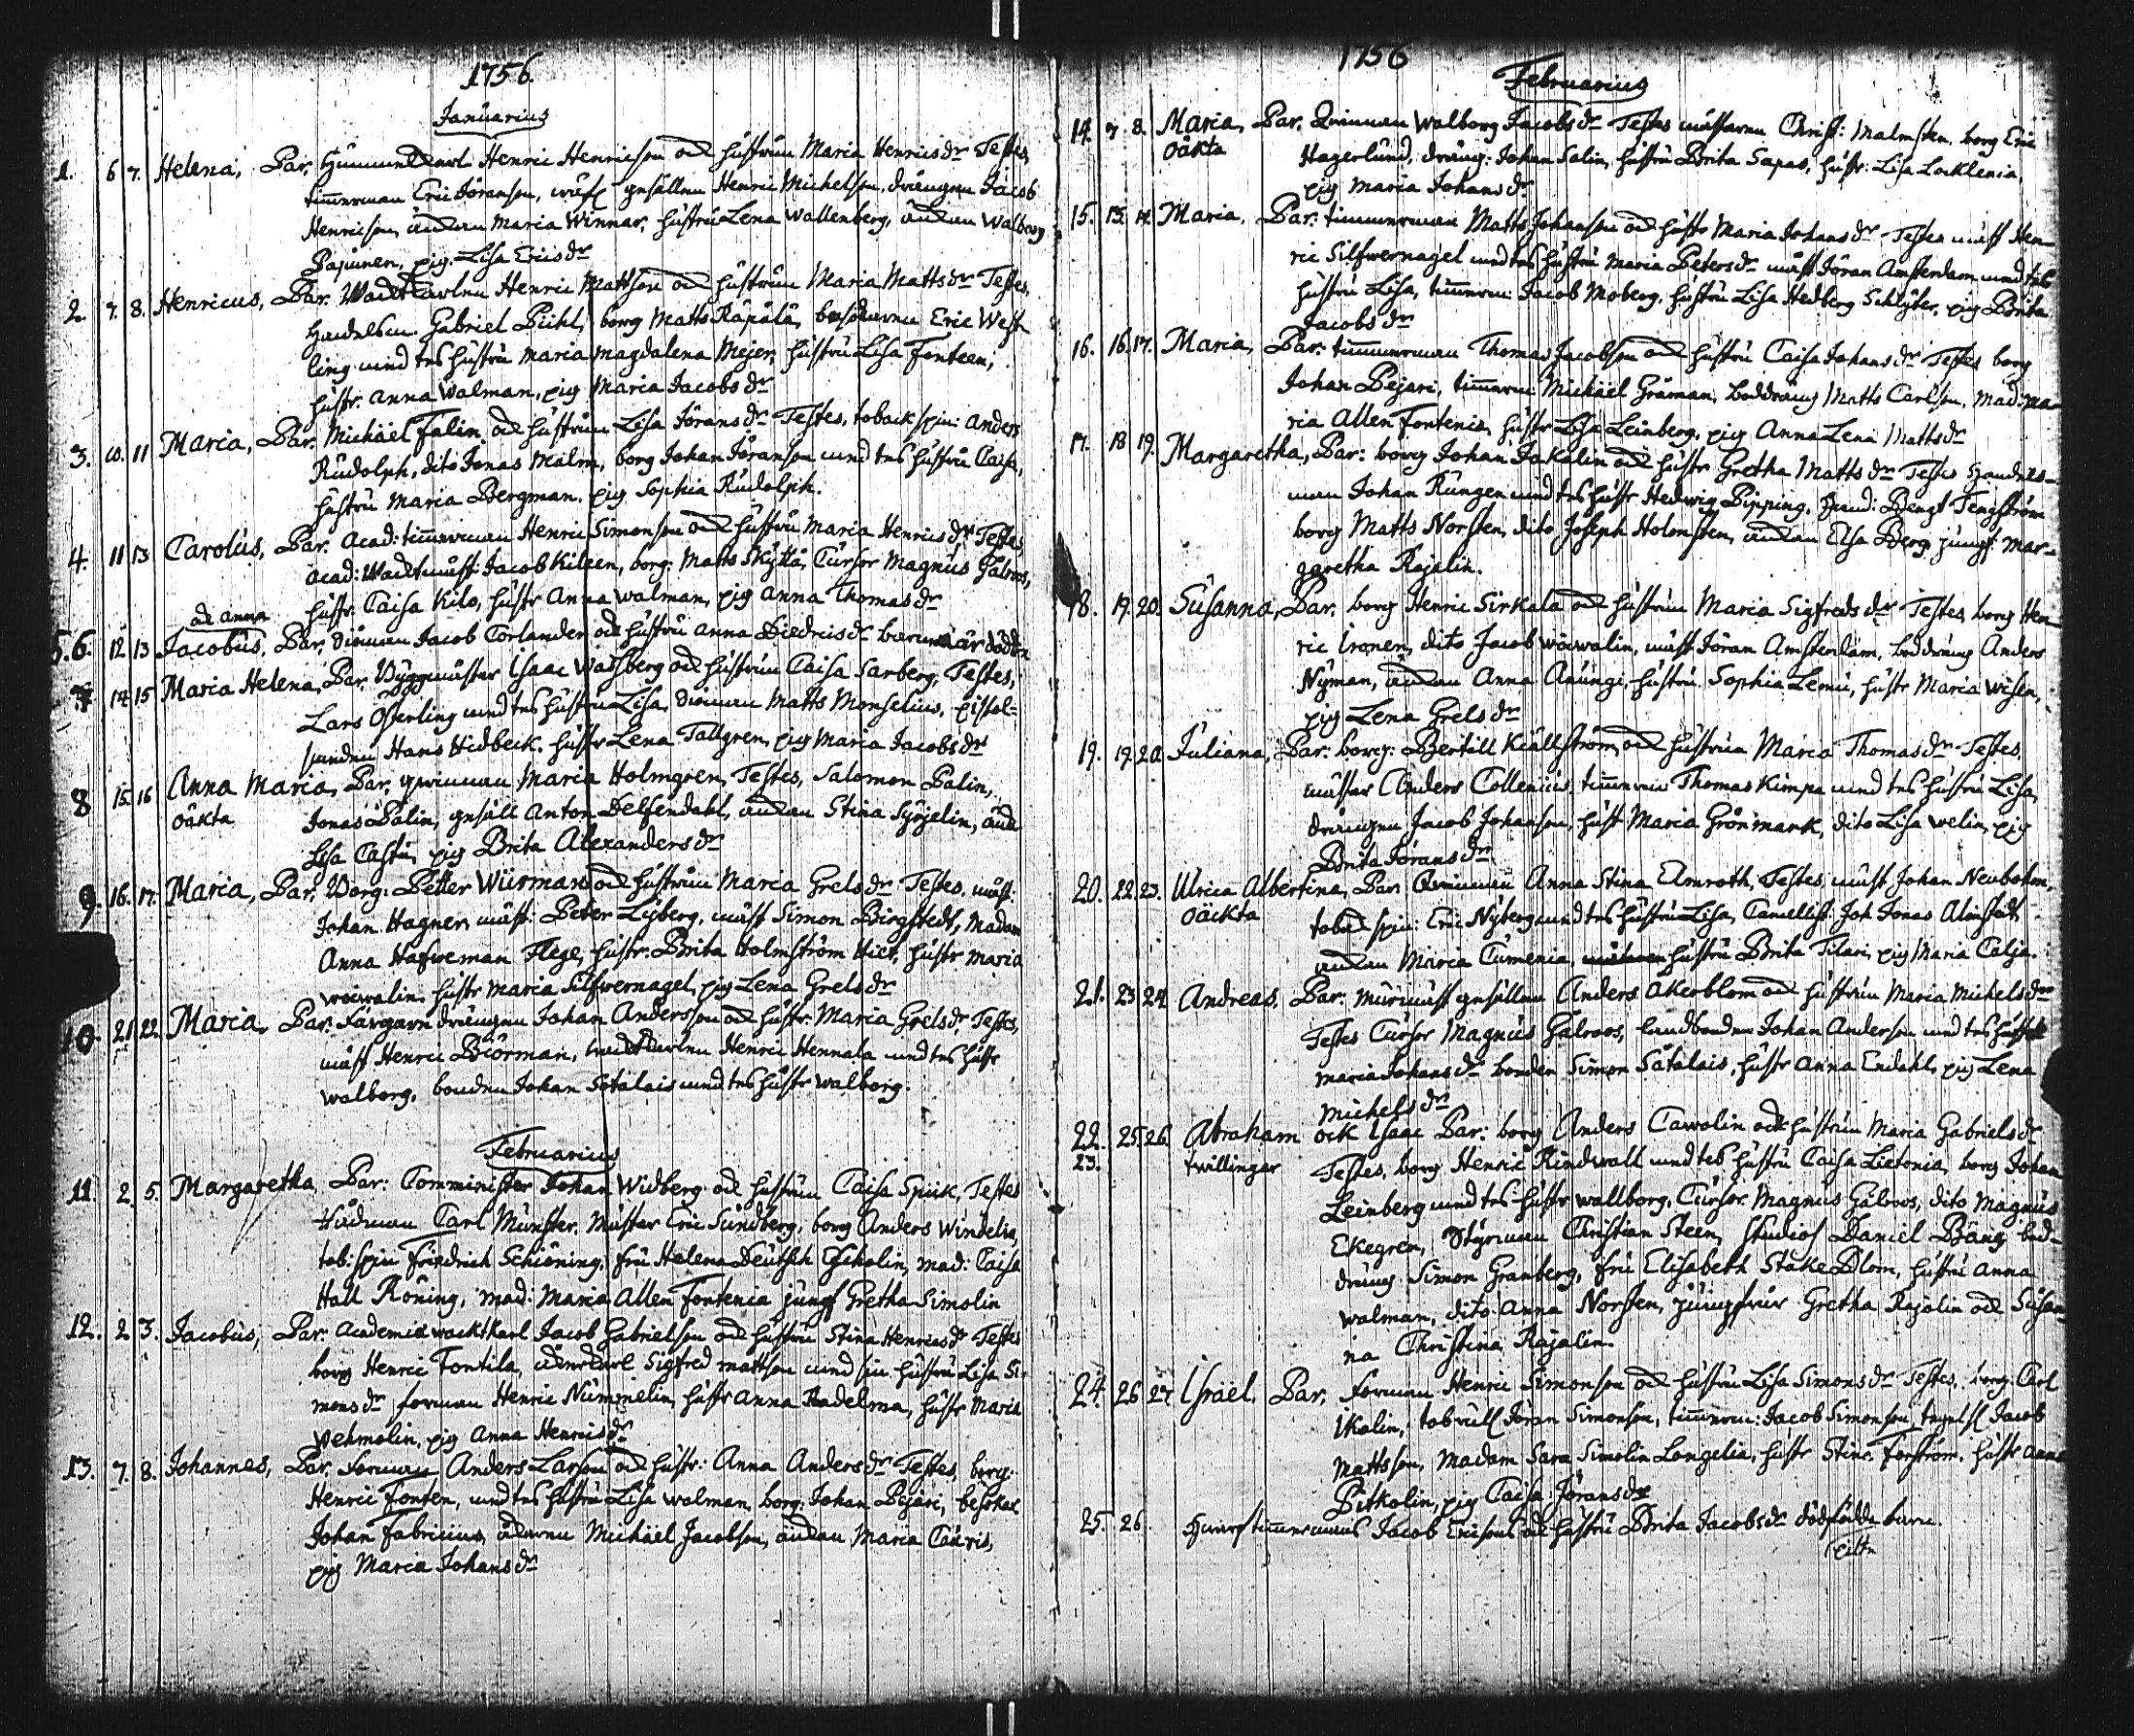 1756.
Januarius
1. 6 7. Helena, Par. Henric Henricson och hustrun Maria Henricsdr Testes,
timmerman Eric Jöranson, gesällen Henric Michelson, drängen Jacob
Henricson, änkan Maria Winnar, hustru Lena Wallenberg, änkan Walborg
Pajuinen, pig. Lisa Ericsdr
2. 7. 8. Henricus, Par. Wacktkarlen Henric Mattson och hustrun Maria Mattsdr Testes,
Handelsm. Gabriel Pihl, borg Matts Räpälä, besökaren Eric West-
ling med dess hustru Maria Magdalena Mejer, hustru Lisa Fonteen,
hustr. Anna Walman, pig Maria Jacobsdr
3. 10. 11 Maria, Par. Michäel Falin och hustrun Lisa Jöransdr Testes, toback spin: Anders
Rudolph, dito Jonas Malm, borg Johan Jöranson med dess hustru Caisa,
hustru Maria Bergman, pig Sophia Rudolph.
4. 11 13 Carolus, Par. Acad: timmerman Henric Simonson och hustru Maria Henricsdr Testes,
Acad: Wacktmäst: Jacob Kileen, borg: Matts Skyttä, Cursor Magnus Galroos,
hustr. Caisa Kilo, hustr Anna Walman, pig Anna Thomasdr
och Anna
5. 6. 12 13 Jacobus, Par. Jacob Torlander och hustru Anna Diedricsdr barnen är dödda
7 14 15 Maria Helena, Par. Byggmästar Isaac Wassberg och hustrun Caisa Sarberg, Testes,
Lars Österling med dess hustru Lisa, Matts Monselius, pistol-
smeden Hans Hidbeck. hustr Lena Tallgren, pig Maria Jacobsdr
8 15. 16 Anna Maria, Par. qwinnan Maria Holmgren, Testes, Salomon Palin,
oäkta Jonas Palin, gesäll Anton Delfendahl, änkan Stina Syrjelin, änk
Lisa pig Brita Alexandersdr
9. 16. 17. Maria, Par. Borg: Petter Wiirman och hustrun Maria Grelsdr Testes, mäst:
Johan Hagner, mäst: Peter Lijberg, mäst Simon Birgstedt, Madam
Anna Hafveman Flege, hustr. Brita Holmström Hiet, hustr Maria
woiwalin, hustr Maria Silfwernagel, pig Lena Grelsdr
10. 21 22. Maria, Par. Färgare drängen Johan Andersson och hustr. Maria Grelsdr, Testes,
mäst Henric Biörman, wacktkarlen Henric Hennala med dess hustr
Walborg, bonden Johan Sotalais med dess hustr Walborg.
Februarius
11. 2. 5. Margaretha Par: Comminister Johan Widberg och hustrun Caisa Spiik, Testes
Rådman Carl Münster, Mästar Eric Sundberg, borg Anders Windelin,
tob: spin Friedrich Schiöning, fru Helena Deutsch Escholin, mad: Caisa
Hall Röning, mad: Maria Allen Fontenia jungf Gretha Simolin
12. 2. 3. Jacobus, Par: Academiæ wacktkarl Jacob Gabrielson och hustru Stina Henricsdr Testes
borg Henric Fontila, Sigfred mattson med sin hustru Lisa Si-
monsdr forman Henric Nummelin, hustr Anna Radelma, hustr Maria
Wehmolin, pig Anna Henricsdr
13. 7. 8. Johannes, Par. Forman Anders Larson och hustr: Anna Andersdr Testes, borg:
Henric Fonten, med dess hustru Lisa Walman, borg: Johan Pijari, besökar
Johan Fabricius, Michäel Jacobson, änkan Maria Cauris,
pig Maria Johansdr
1756
Februarius
14. 7 8. Maria, Par. Qwinnan Walborg Jacobsdr Testes mästaren Christ: Malmsten, borg Eric
oäkta Hagerlund, dräng: Johan Salin, hustru Brita Sapas, hustr: Lisa Locklenia,
pig Maria Johansdr
15. 13. 14. Maria, Par: timmerman Matts Johanson och hustr Maria Johansdr Testes mäst Hen-
ric Silfwernagel med dess hustru Maria Petersdr mäst Jöran Amsterdam med dess
hustru Lisa, timmerm: Jacob Moberg, hustru Lisa Hedberg Schlyter, pig Brita
Jacobsdr
16. 16. 17. Maria, Par: timmerman Thomas Jacobson och hustru Caisa Johansdr Testes borg
Johan Pejari, timmerm: Michäel Gråman, boddräng Matts Carlson, mad: Ma-
ria Allen Fontenia, hustr Lisa Leinberg, pig Anna Lena Mattsdr
17. 18 19. Margaretha, Par: borg Johan Jakalin och hustr Gretha Mattsdr Testes Handels-
man Johan Rungen med dess hustr Hedwig Pipping, Hand: Bengt Tengström
borg Matts Norsten, dito Joseph Holmsten, änkan Elsa Berg jungf: Mar-
garetha Rajalin.
18. 19. 20. Susanna, Par. borg Henric Sirkala och hustrun Maria Sigfredsdr Testes borg Hen-
ric Ironen, dito Jacob woiwalin, mäst Jöran Amsterdam, boddräng Anders
Nyman, änkan Anna Aningi, hustru Sophia Lemu, hustr Maria Wisen,
pig Lena Grelsdr
19. 19. 20. Juliana, Par: borg: Bertill Kiällström och hustrun Maria Thomasdr Testes,
mästar Anders Collenius, timmerm: Thomas Kimpa med dess hustru Lisa,
drängen Jacob Johanson, hust Maria Grönmark, dito Lisa Welin, pig
Brita Jöransdr
20. 22. 23. Ulrica Albertina, Par: Qwinnan Anna Stina Elmroth, Testes, mäst Johan Neubohm,
oäckta toback spin: Eric Nyberg med dess hustru Lisa, Cancellist: Joh Jonas Almstedt
änkan Maria Cumenia, hustru Brita Tilari, pig Maria Calja.
21. 23 24 Andreas. Par: murmäst gesällen Anders Åkerblom och hustrun Maria Michelsdr
Testes Cursor Magnus Galroos, landbonden Johan Anderson med dess hustr
Maria Johansdr bonden Simon Sätalais, hustr Anna Endahl, pig Lena
Michelsdr
22. 25. 26. Abraham och Isaac Par: borg Anders Cawolin och hustrun Maria Gabrielsdr
23. twillingar Testes, borg Henric Rindwall med dess hustru Caisa Lietonia, borg Johan
Leinberg med dess hustr Wallborg, Cursor Magnus Galroos, dito Magnus
Ekegren, Styrman Christian Steen, Studios Daniel Bång bod-
dräng Simon Granberg, fru Elisabeth Stake Blom, hustru Anna
Walman, dito Anna Norsten, jungfrur Gretha Rajalin och Susan-
na Christina Rajalin.
24. 26 27 Israël. Par. Forman Henric Simonson och hustru Lisa Simonsdr Testes, borg. Carl
Ikalin, Jöran Simonson, timmerm: Jacob Simonson, Jacob
Mattsson, Madam Sara Simolin Longelia, hustr Stina Forström, hustr Anna
Pitkolin, pig Caisa Jöransdr
25. 26. timmermans Jacob Ericsons och hustru Brita Jacobsdr dödfödda barn.
pilte